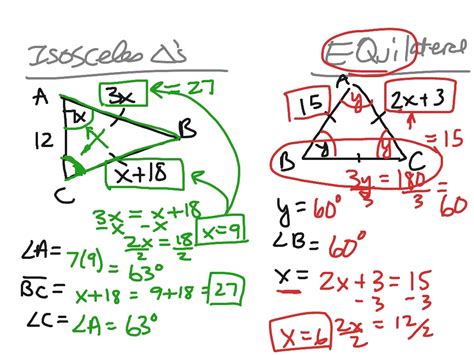 Isosceles Δ's
A
3x = 27
12
7x
B
C
x+18
3x = x+18
-x -x
2x = 18
2 2
x=9
∠A= 7(9) = 63°
BC = x+18 = 9+18 = 27
∠C= ∠A = 63°
EQuilateral
A
15
y
2x+3
= 15
B
y
y
C
3y = 180 = 60
3 3
y = 60°
∠B = 60°
x = 2x+3 = 15
-3 -3
2x = 12/2
2
x=6